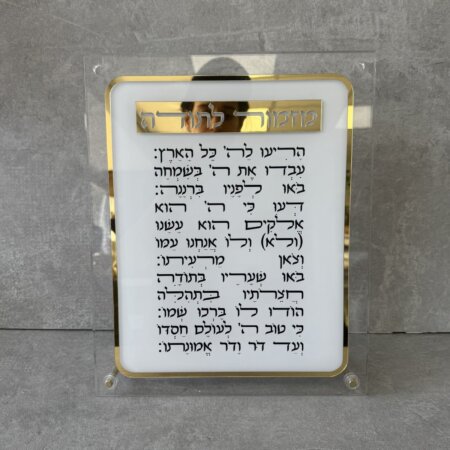 מזמור לתודה
הָרִיעוּ לַה' כָּל הָאָרֶץ:
עִבְדוּ אֶת ה' בְּשִׂמְחָה
בֹּאוּ לְפָנָיו בִּרְנָנָה:
דְּעוּ כִּי ה' הוּא
אֱלֹקִים הוּא עָשָׂנוּ
(ולא) וְלוֹ אֲנַחְנוּ עַמּוֹ
וְצֹאן מַרְעִיתוֹ:
בֹּאוּ שְׁעָרָיו בְּתוֹדָה
חֲצֵרֹתָיו בִּתְהִלָּה
הוֹדוּ לוֹ בָּרְכוּ שְׁמוֹ:
כִּי טוֹב ה' לְעוֹלָם חַסְדּוֹ
וְעַד דֹּר וָדֹר אֱמוּנָתוֹ: